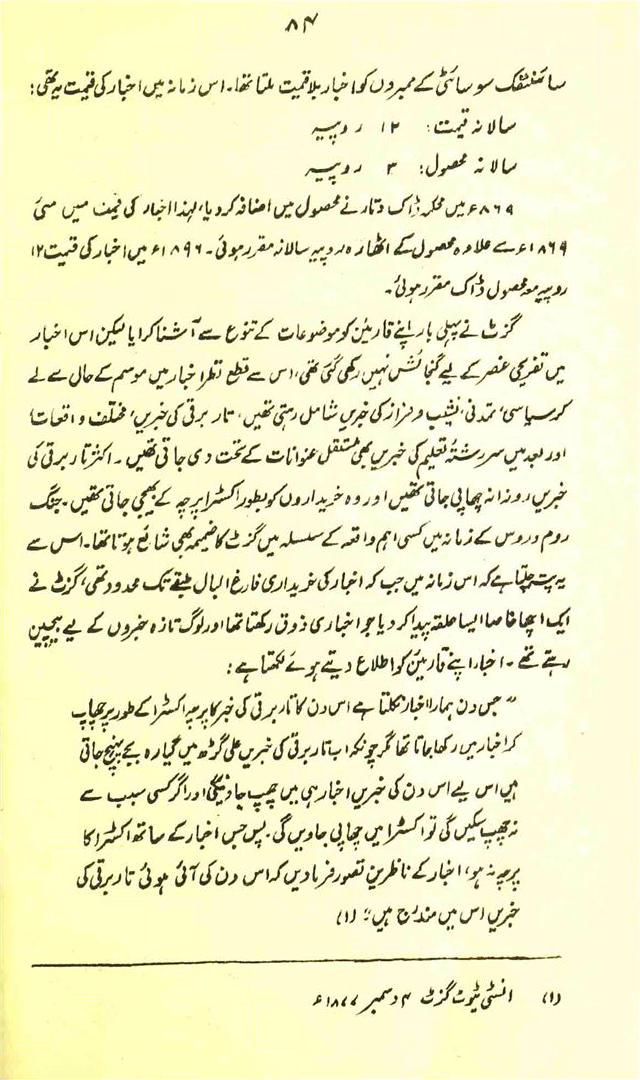 ۸۴
سائنٹفک سوسائٹی کے ممبروں کو اخبار بلا قیمت ملتا تھا۔ اس زمانہ میں اخبار کی قیمت یہ تھی:
سالانہ قیمت: ۱۲ روپیہ
سالانہ محصول: ۳ روپیہ
۱۸۶۹ء میں محکمہ ڈاک و تار نے محصول میں اضافہ کر دیا، لہذا اخبار کی قیمت میں مئی
۱۸۶۹ء سے علاوہ محصول کے اٹھارہ روپیہ سالانہ مقرر ہوئی۔ ۱۸۹۶ء میں اخبار کی قیمت ۱۲
روپیہ مع محصول ڈاک مقرر ہوئی۔
گزٹ نے پہلی بار اپنے قارئین کو موضوعات کے تنوع سے آشنا کرایا لیکن اس اخبار
میں تفریحی عنصر کے لیے گنجائش نہیں رکھی گئی تھی، اس سے قطع نظر اخبار میں موسم کے حال سے لے
کر سیاسی، تمدنی، نشیب و فراز کی خبریں شامل رہتی تھیں، تار برقی کی خبریں، مختلف واقعات،
اور بعد میں سررشتۂ تعلیم کی خبریں بھی مستقل عنوانات کے تحت دی جاتی تھیں۔ اکثر تار برقی کی
خبریں روزانہ چھاپی جاتی تھیں اور وہ خریداروں کو بطور اکسٹرا پرچہ کے بھیجی جاتی تھیں۔ جنگ
روم و روس کے زمانہ میں کسی اہم واقعہ کے سلسلہ میں گزٹ کا ضمیمہ بھی شائع ہوتا تھا۔ اس سے
یہ پتہ چلتا ہے کہ اس زمانہ میں جب کہ اخبار کی خریداری فارغ البال طبقے تک محدود تھی، گزٹ نے
ایک اچھا خاصا ایسا حلقہ پیدا کر دیا جو اخباری ذوق رکھتا تھا اور لوگ تازہ خبروں کے لیے بیچین
رہتے تھے۔ اخبار اپنے قارئین کو اطلاع دیتے ہوئے لکھتا ہے:
"جس دن ہمارا اخبار نکلتا ہے اس دن کا تار برقی کی خبر کا پرچہ اکسٹرا کے طور پر چھاپ
کر اخبار میں رکھا جاتا تھا مگر چونکہ اب تار برقی کی خبریں علی گڑھ میں گیارہ بجے پہنچ جاتی
ہیں اس لیے اس دن کی خبریں اخبار ہی میں چھپ جاوینگی اور اگر کسی سبب سے
نہ چھپ سکیں گی تو اکسٹرا میں چھاپی جاویں گی۔ پس جس اخبار کے ساتھ اکسٹرا کا
پرچہ نہ ہو، اخبار کے ناظرین تصور فرماویں کہ اس دن کی آئی ہوئی تار برقی کی
خبریں اس میں مندرج ہیں" (۱)
(۱) انسٹی ٹیوٹ گزٹ ۴ دسمبر ۱۸۷۷ء